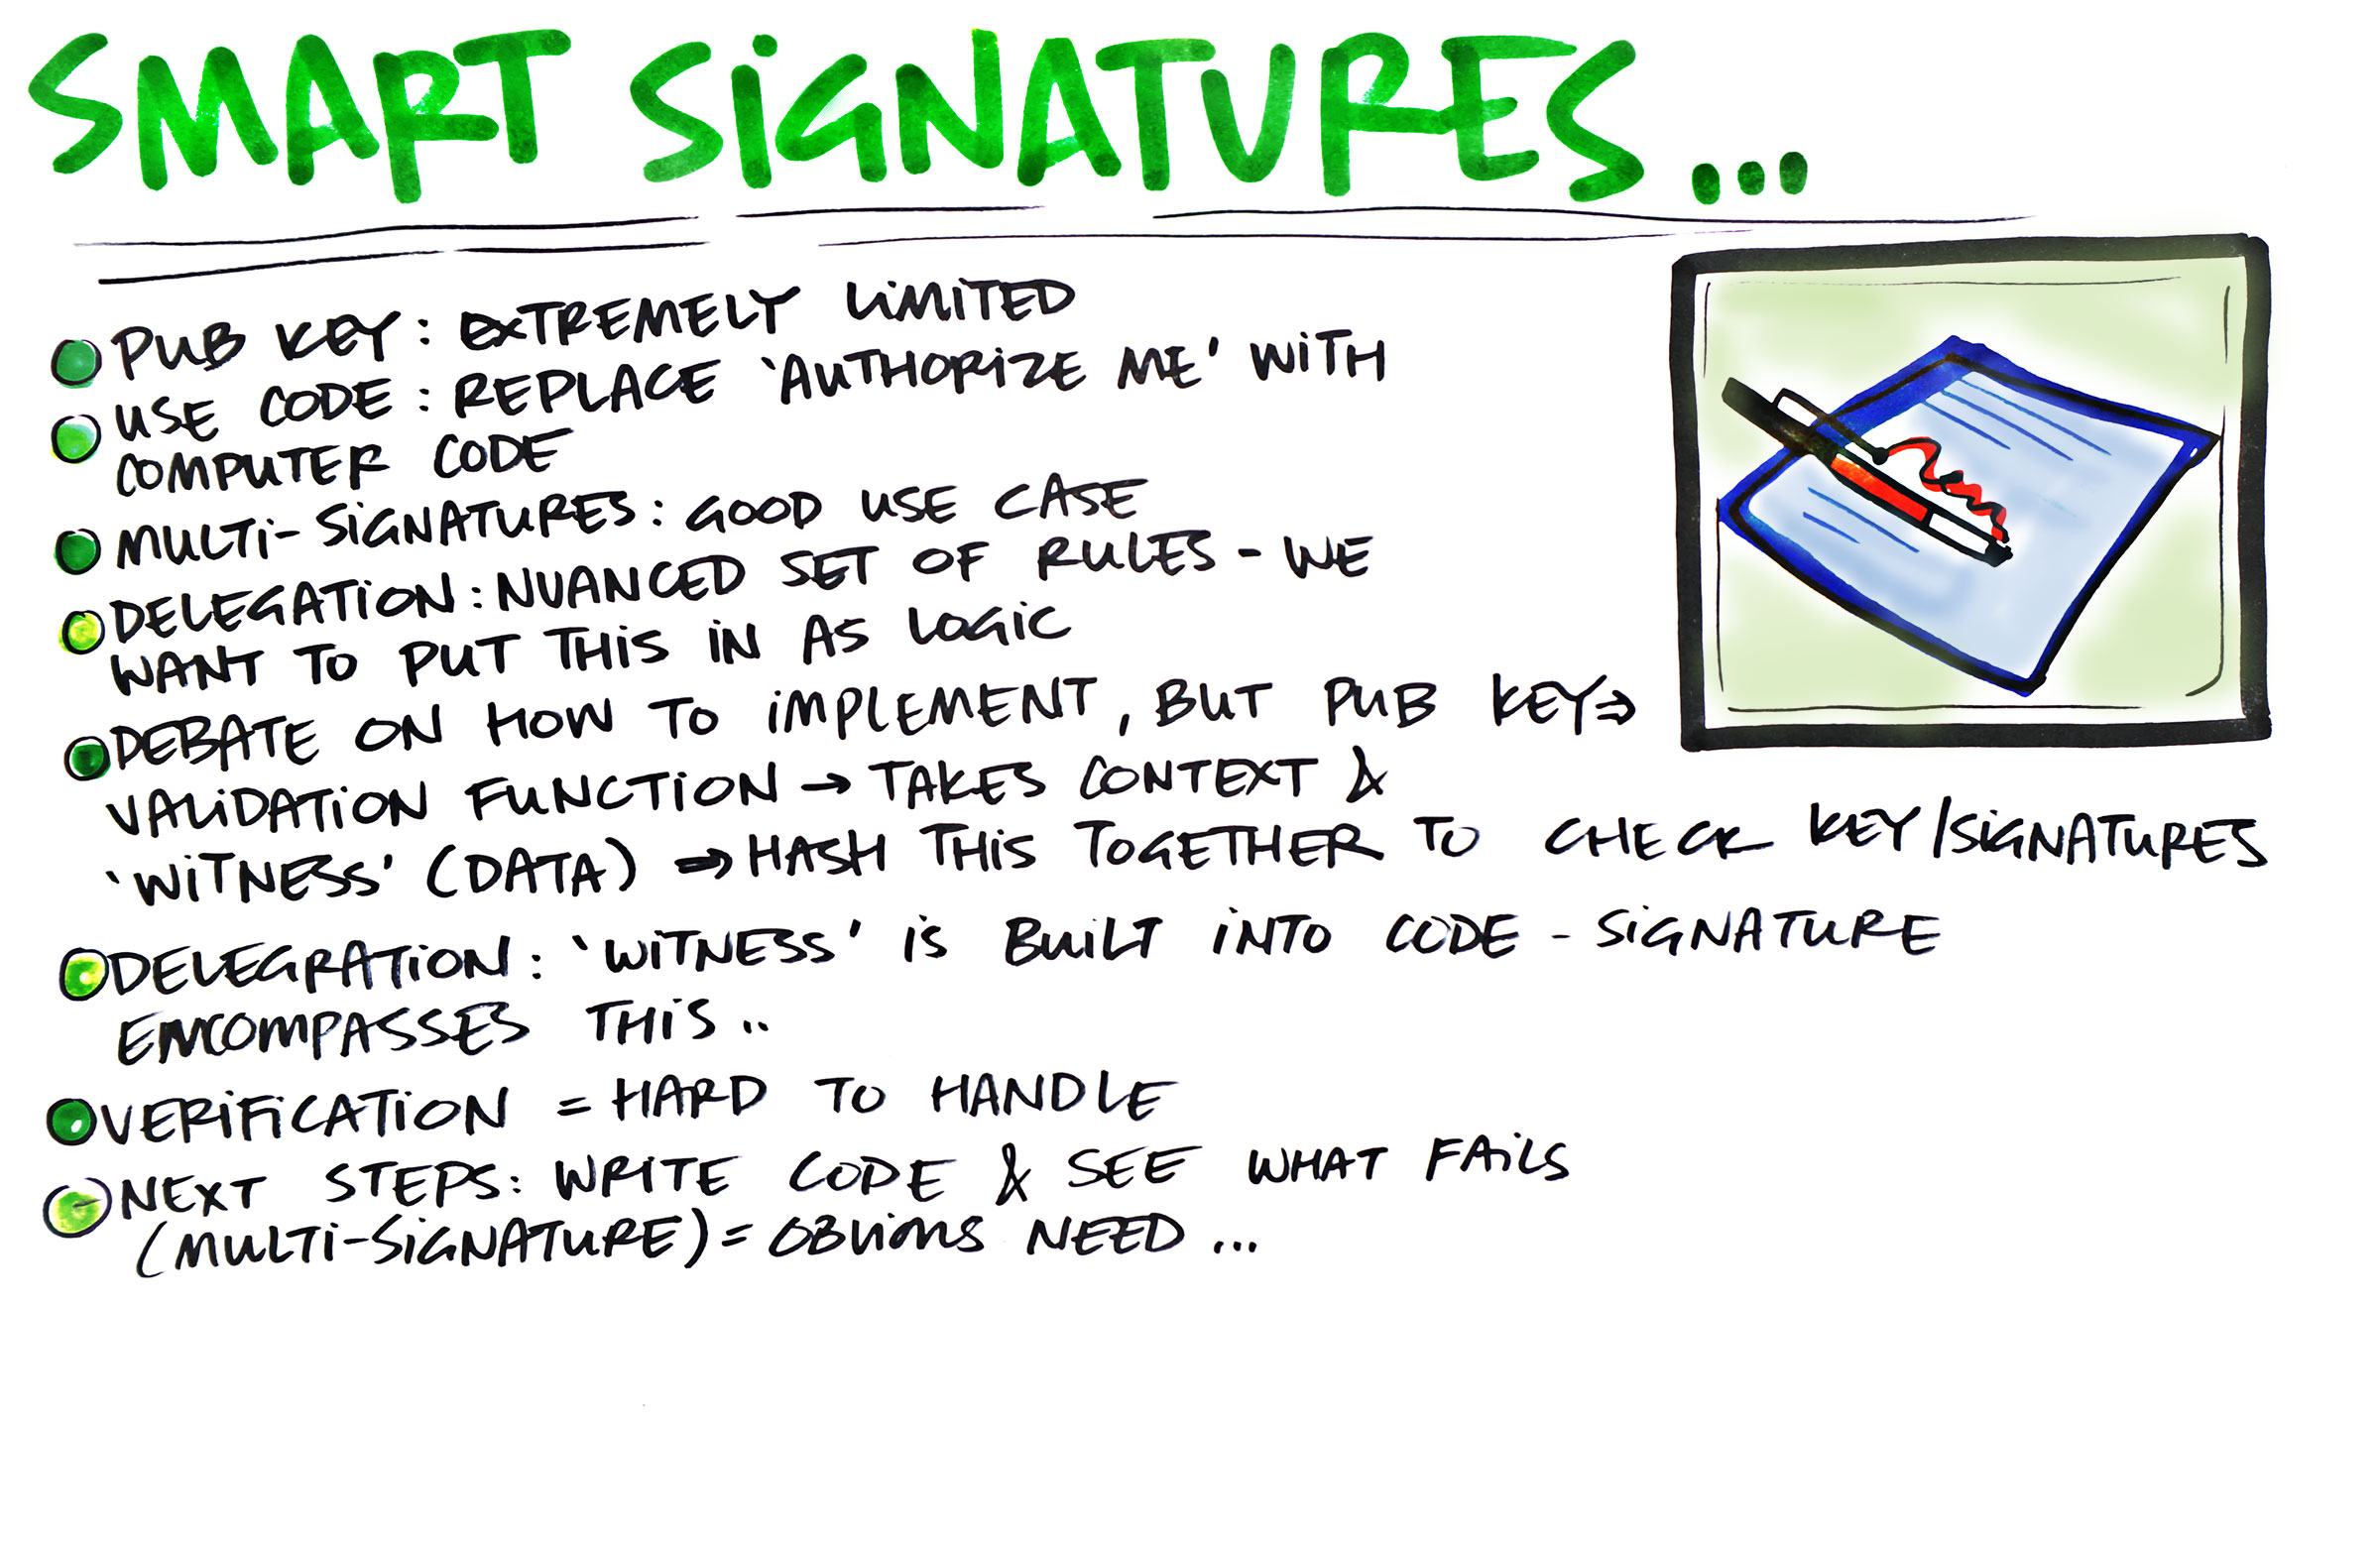 SMART SiGNATURES...
PUB KEY: EXTREMELY LiMiTED
USE CODE: REPLACE 'AUTHORiZE ME' WiTH
COMPUTER CODE
MULTi-SiGNATURES: GOOD USE CASE
DELEGATiON: NUANCED SET OF RULES - WE
WANT TO PUT THiS iN AS LOGiC
DEBATE ON HOW TO iMPLEMENT, BUT PUB KEY⇒
VALiDATiON FUNCTiON → TAKES CONTEXT &
'WiTNESS' (DATA) ⇒ HASH THiS TOGETHER TO CHECK KEY/SiGNATURES
DELEGRATiON: 'WiTNESS' iS BUiLT iNTO CODE - SiGNATURE
ENCOMPASSES THiS..
VERiFiCATiON = HARD TO HANDLE
NEXT STEPS: WRITE CODE & SEE WHAT FAiLS
(MULTi-SiGNATURE) = OBViOUS NEED...